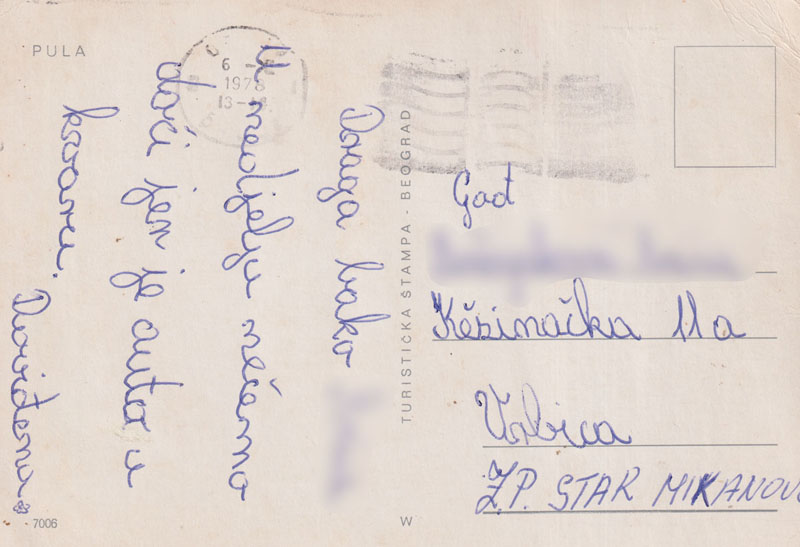 PULA
6
1978
13-
Draga bako
U nedjelju nećemo
doći jer je auto u
kvaru. Doviđenja
TURISTIČKA ŠTAMPA - BEOGRAD
Gođ
Kešinačka 11a
Vrbica
Ž.P. STAR MIKANOV
7006
W